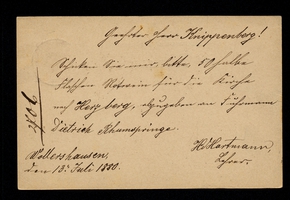 Geehrter Herr Knippenberg!
Schicken Sie mir bitte, 50 halbe
Flaschen Rotwein für die Kirche
nach Herzberg, abzugeben an Fuhrmann
Dietrich Rhumspringe.
H. Hartmann,
Lehrer.
Wollershausen,
den 13. Juli 1880.